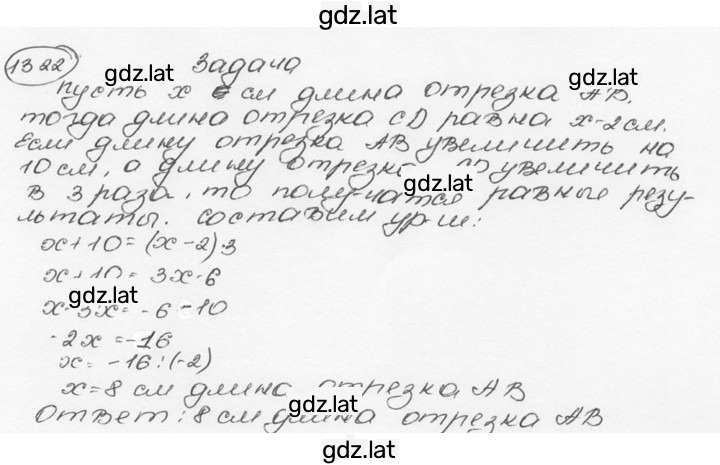 gdz.lat
1322 Задача
gdz.lat gdz.lat
Пусть x см длина отрезка AB,
тогда длина отрезка CD равна x-2 см.
Если длину отрезка AB увеличить на
10 см, а длину отрезка CD увеличить
gdz.lat
в 3 раза, то получатся равные резу-
льтаты. Составим ур-ие:
x+10=(x-2)·3
x+10=3x-6
gdz.lat
x-3x=-6-10
-2x=-16
x=-16:(-2)
x=8 см длина отрезка AB
gdz.lat
Ответ: 8 см длина отрезка AB
gdz.lat